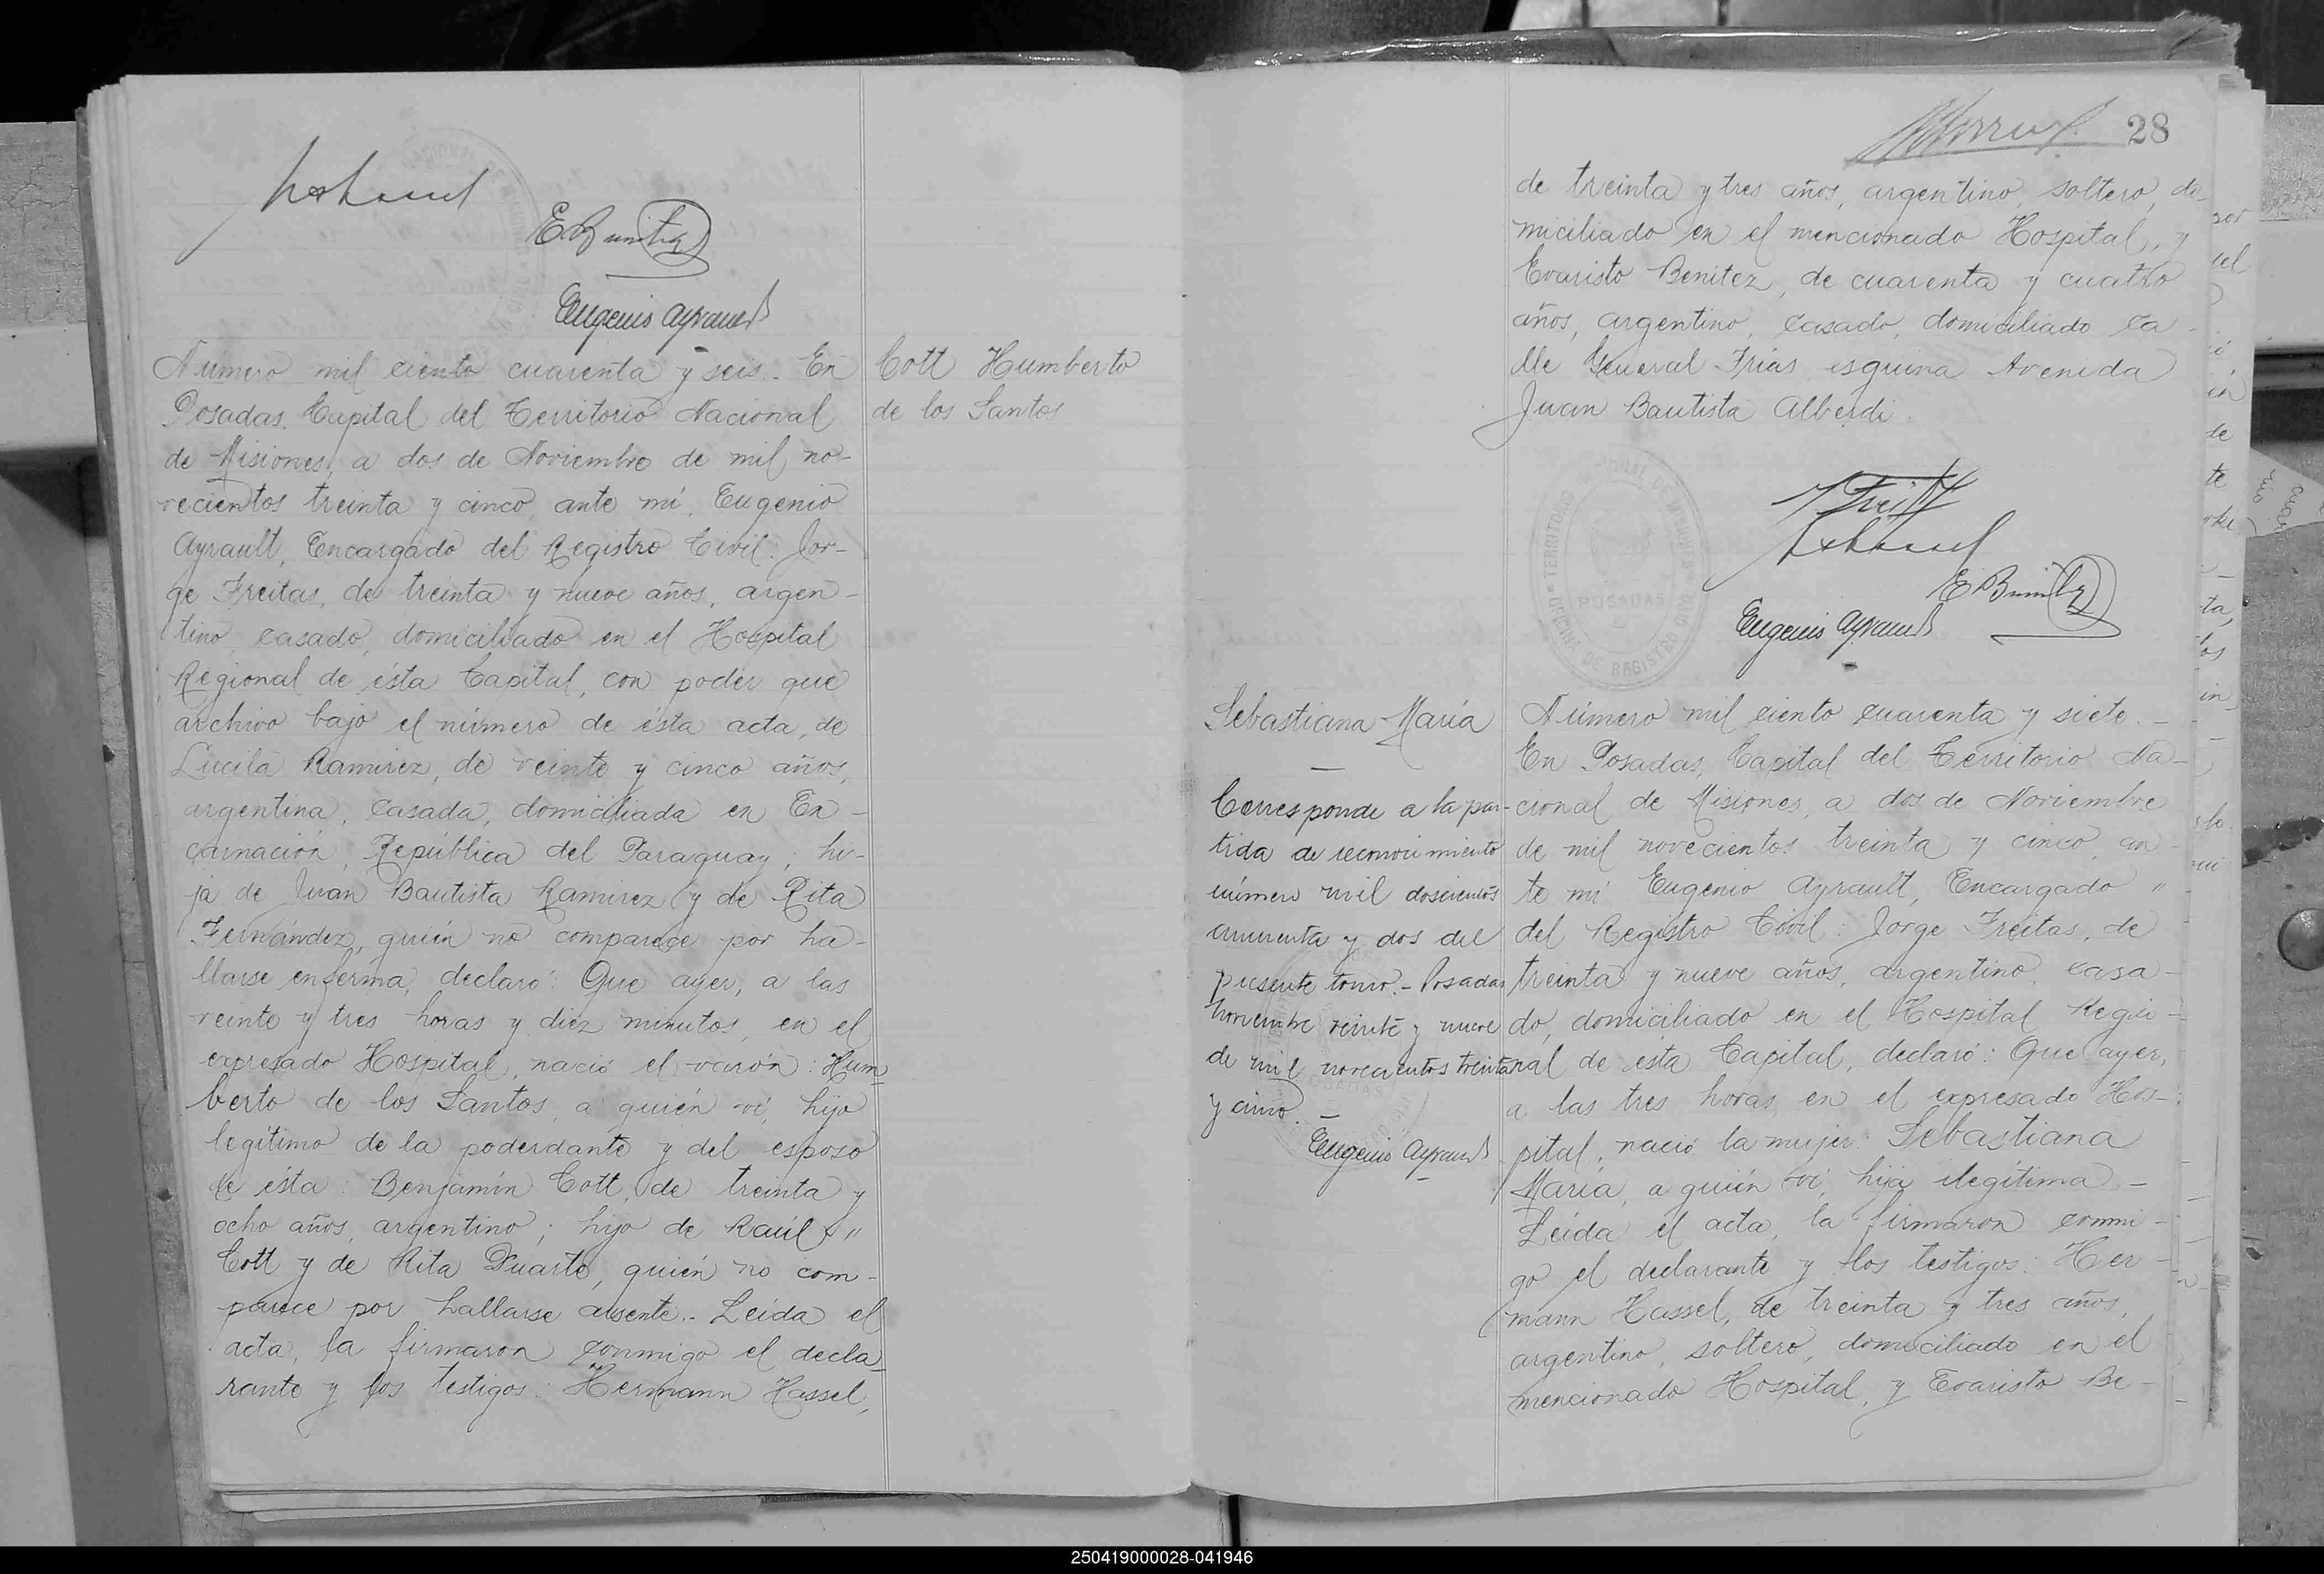 E Benitez
Eugenio Ayrault
Número mil ciento cuarenta y seis.- En
Posadas, Capital del Territorio Nacional
de Misiones, a dos de Noviembre de mil no-
vecientos treinta y cinco, ante mí, Eugenio
Ayrault, Encargado del Registro Civil: Jor-
ge Freitas, de treinta y nueve años, argen-
tino, casado, domiciliado en el Hospital
Regional de ésta Capital, con poder que
archivo bajo el número de ésta acta, de
Lucila Ramirez, de veinte y cinco años,
argentina, casada, domiciliada en En-
carnación, República del Paraguay; hi-
ja de Juan Bautista Ramirez y de Rita
Fernández, quién no comparece por ha-
llarse enferma, declaró: Que ayer, a las
veinte y tres horas y diez minutos, en el
expresado Hospital, nació el varón: Hum-
berto de los Santos, a quién ví, hijo
legítimo de la poderdante y del esposo
de ésta: Benjamín Cott, de treinta y
ocho años, argentino; hijo de Raúl "
Cott y de Rita Duarte, quién no com-
parece por hallarse ausente.- Leída el
acta, la firmaron conmigo el decla-
rante y los testigos: Hermann Hassel,
Cott Humberto
de los Santos
28
de treinta y tres años, argentino, soltero, do-
miciliado en el mencionado Hospital, y
Evaristo Benitez, de cuarenta y cuatro
años, argentino, casado, domiciliado ca-
lle General Frías esquina Avenida
Juan Bautista Alberdi.
TERRITORIO NACIONAL DE MISIONES
POSADAS
OFICINA DE REGISTRO CIVIL
J Freitas
E Benitez
Eugenio Ayrault
Sebastiana María
Corresponde a la par-
tida de reconocimiento
número mil doscientos
cuarenta y dos del
presente tomo.- Posadas
Noviembre veinte y nueve
de mil novecientos treinta
y cinco.-
Eugenio Ayrault
Número mil ciento cuarenta y siete.-
En Posadas, Capital del Territorio Na-
cional de Misiones, a dos de Noviembre
de mil novecientos treinta y cinco, an-
te mí Eugenio Ayrault, Encargado "
del Registro Civil: Jorge Freitas, de
treinta y nueve años, argentino, casa-
do, domiciliado en el Hospital Regio-
nal de ésta Capital, declaró: Que ayer,
a las tres horas, en el expresado Hos-
pital, nació la mujer: Sebastiana
María, a quién ví, hija ilegítima.-
Leída el acta, la firmaron conmi-
go el declarante y los testigos: Her-
mann Hassel, de treinta y tres años,
argentino, soltero, domiciliado en el
mencionado Hospital, y Evaristo Be-
250419000028-041946